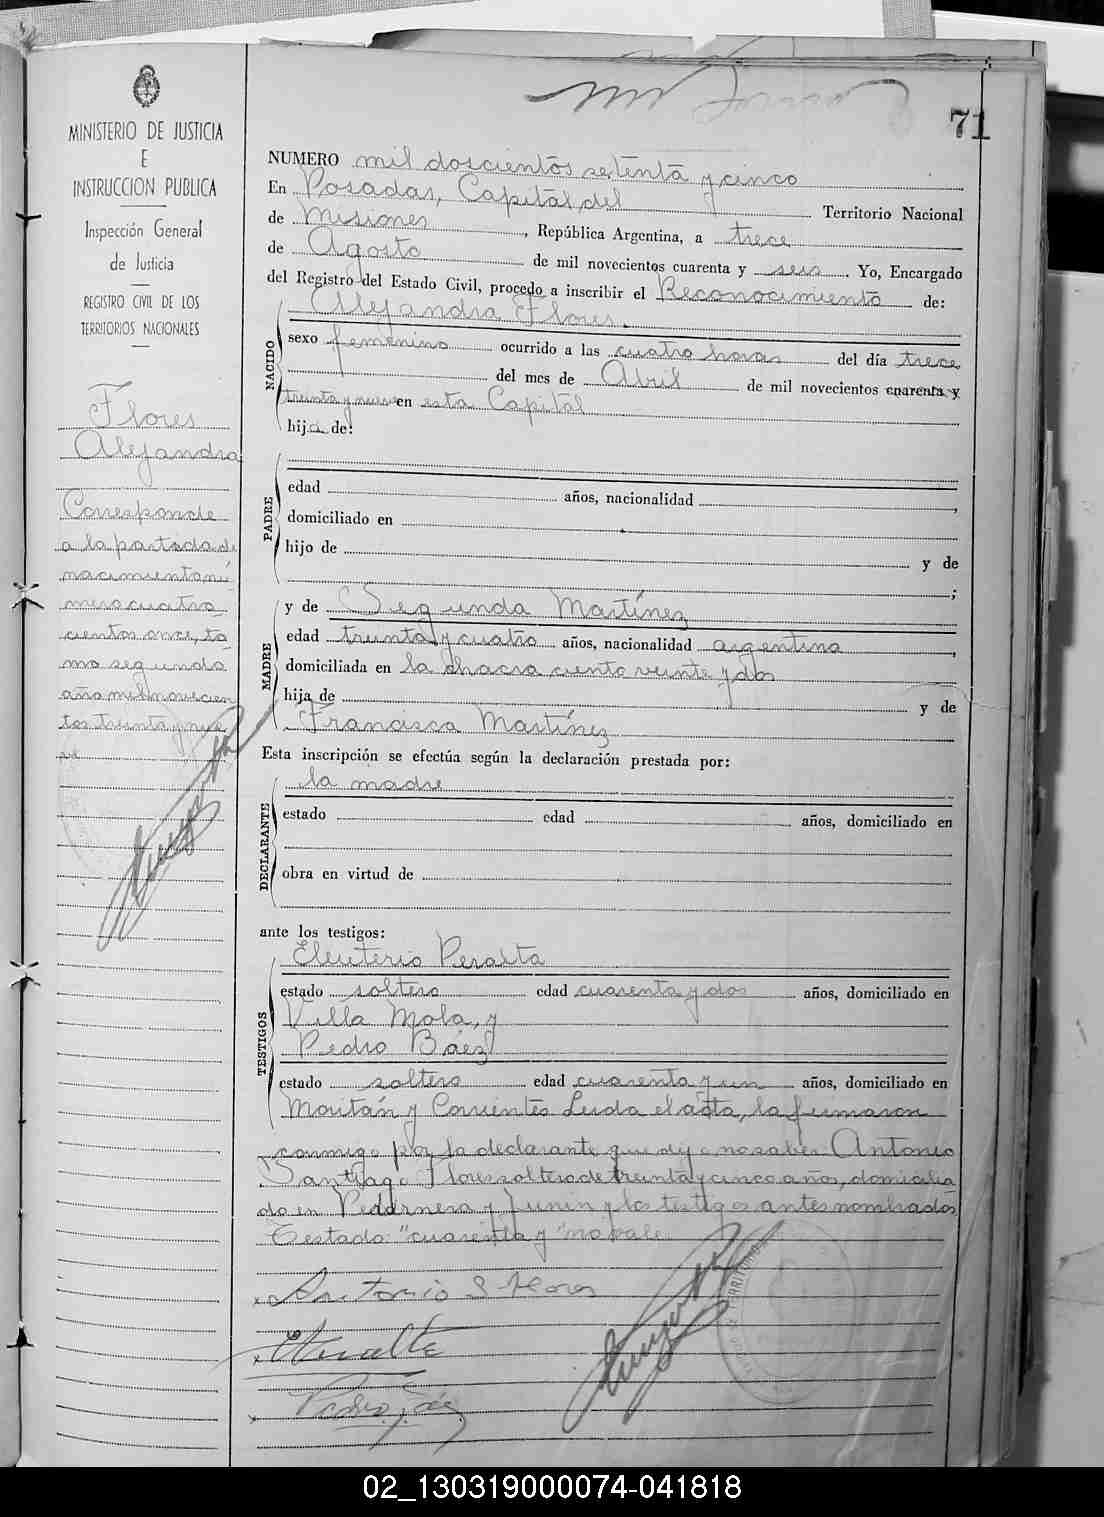 71
MINISTERIO DE JUSTICIA
E
INSTRUCCION PUBLICA
Inspección General
de Justicia
REGISTRO CIVIL DE LOS
TERRITORIOS NACIONALES
Flores
Alejandra
Corresponde
a la partida de
nacimiento nú
mero cuatro
cientos once, to
mo segundo
año mil novecien
tos treinta y nue
ve
NUMERO mil doscientos setenta y cinco
En Posadas, Capital del Territorio Nacional
de Misiones, República Argentina, a trece
de Agosto de mil novecientos cuarenta y seis. Yo, Encargado
del Registro del Estado Civil, procedo a inscribir el Reconocimiento de:
Alejandra Flores.
NACIDO
sexo femenino ocurrido a las cuatro horas del día trece
del mes de Abril de mil novecientos cuarenta y
treinta y nueve en esta Capital
hija de:
PADRE
edad años, nacionalidad ,
domiciliado en
hijo de y de
;
MADRE
y de Segunda Martínez
edad treinta y cuatro años, nacionalidad argentina,
domiciliada en la chacra ciento veinte y dos
hija de y de
Francisca Martínez
Esta inscripción se efectúa según la declaración prestada por:
la madre
DECLARANTE
estado edad años, domiciliado en
obra en virtud de
ante los testigos:
TESTIGOS
Eleuterio Peralta
estado soltero edad cuarenta y dos años, domiciliado en
Villa Mola, y
Pedro Báez
estado soltero edad cuarenta y un años, domiciliado en
Maitán y Corrientes Leida el acta, la firmaron
conmigo por la declarante que dijo no saber Antonio
Santiago Flores soltero de treinta y cinco años, domicilia
do en Pedernera y Junin y los testigos antes nombrados
Testado: "cuarenta y" no vale.
x Antonio S Flores
x EPeralta
x Pedro Báez
02_130319000074-041818